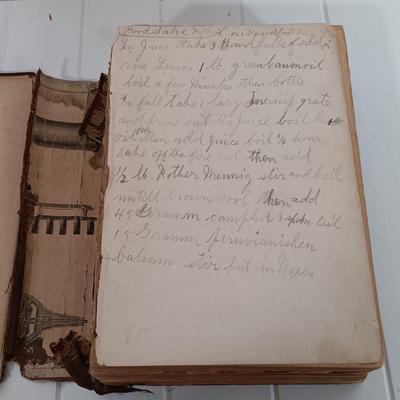 Good Salve
In June take 3 Handfulls of red
rose Leaves 1 lb. greenbaumoil
boil a few Minutes then bottle
In fall take 1 larg Turnip grate
and press out the juice boil
oil then add juice boil 1/4 hour
take off the fire cool then add
1/2 lb. Rother Mennig stir and boil
untill brown cool then add
45 Gramm camphor 3 spoon Oil
15 Gramm peruvianishen
balsam stir put in Boxes